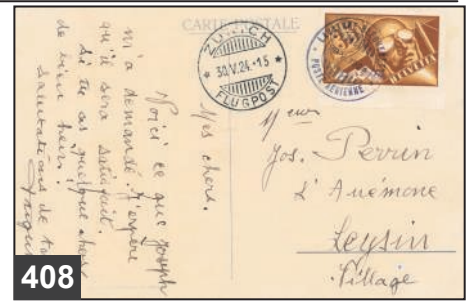 CARTE POSTALE
ZÜRICH
30.V.24-15
FLUGPOST
POSTE AÉRIENNE
HELVETIA
Mes chers.
Voici ce que Joseph
m'a demandé. J'espère
qu'il sera satisfait.
Si tu as quelque chose
de bien
Salutations de
Jos. Perrin
L'Anémone
Leysin
Village
408